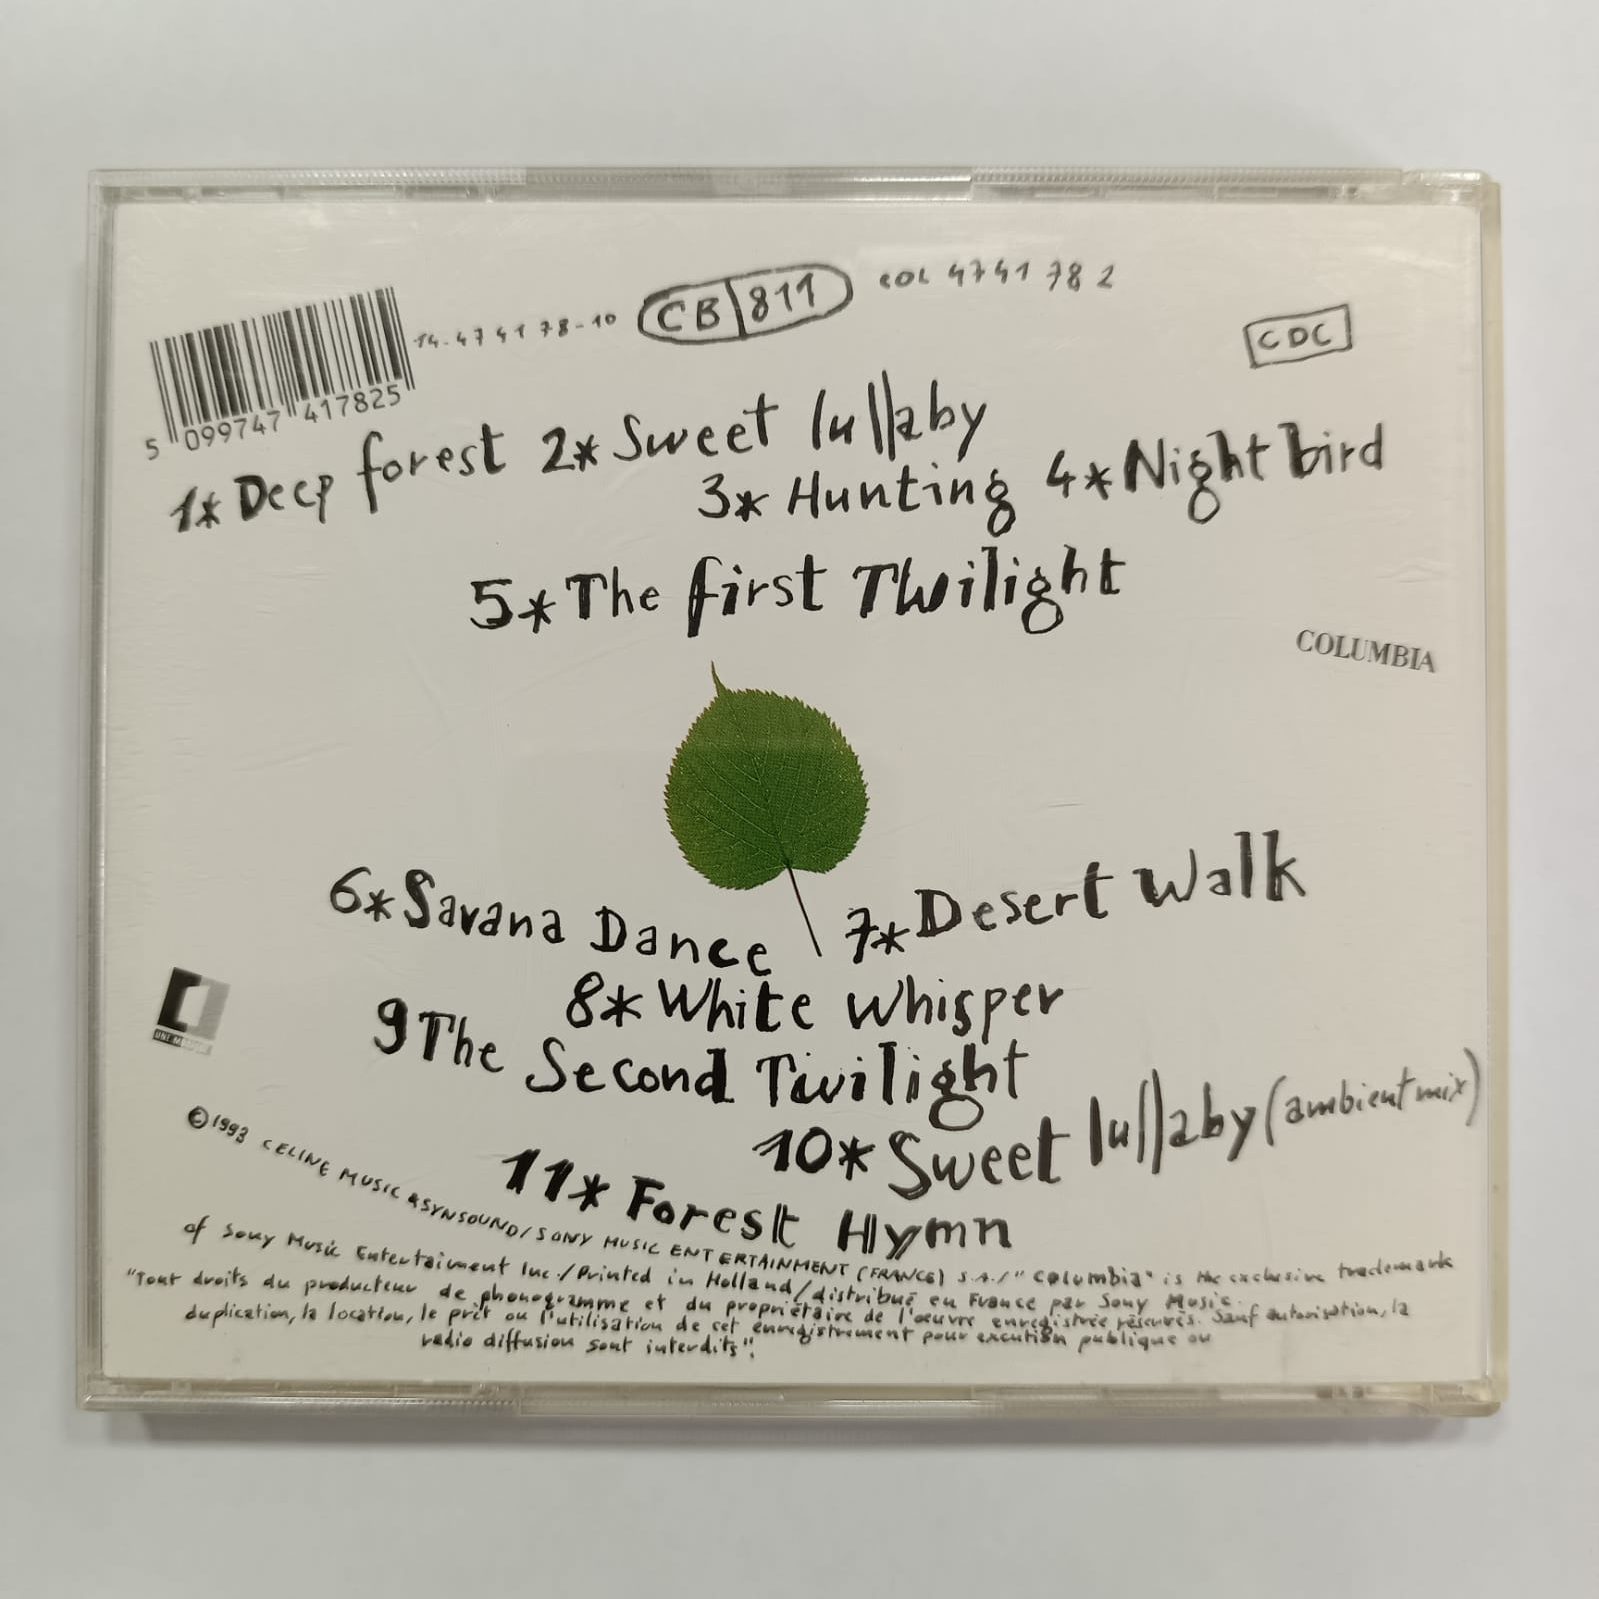 5 099747 417825
14-4741 78-10
CB 811
COL 4741 78 2
CDC
1* Deep forest 2* Sweet lullaby
3* Hunting 4* Night bird
5* The first Twilight
COLUMBIA
6* Savana Dance 7* Desert Walk
8* White whisper
9 The Second Twilight
10* Sweet lullaby (ambient mix)
11* Forest Hymn
©1993 CELINE MUSIC & SYNSOUND/SONY MUSIC ENTERTAINMENT (FRANCE) S.A./"Columbia" is the exclusive trademark
of Sony Music Entertaiment Inc./Printed in Holland/distribué en France par Sony Music.
"Tout droits du producteur de phonogramme et du propriétaire de l'œuvre enregistrée réservés. Sauf autorisation, la
duplication, la location, le prêt ou l'utilisation de cet enregistrement pour excution publique ou
radio diffusion sont interdits".